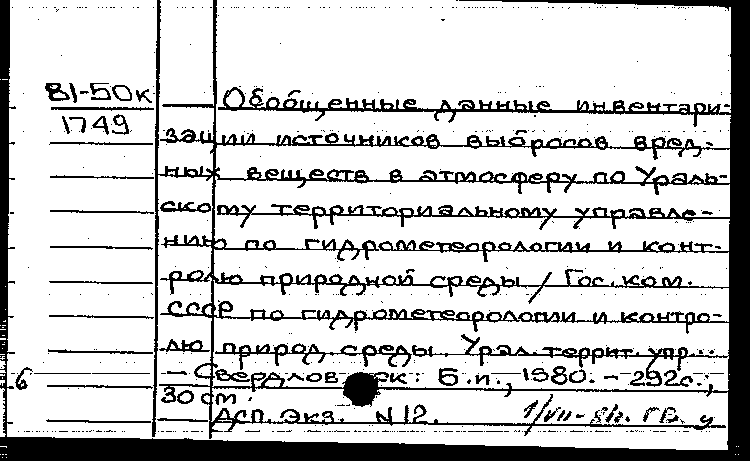 81-50к
1749
Обобщенные данные инвентари-
зации источников выбросов вред-
ных веществ в атмосферу по Ураль-
скому территориальному управле-
нию по гидрометеорологии и конт-
ролю природной среды / Гос. ком.
СССР по гидрометеорологии и контро-
лю природ. среды. Урал. террит. упр...
– Свердловск: Б.и., 1980. – 292с.;
6
30 cm.
Дсп. Экз. N 12.